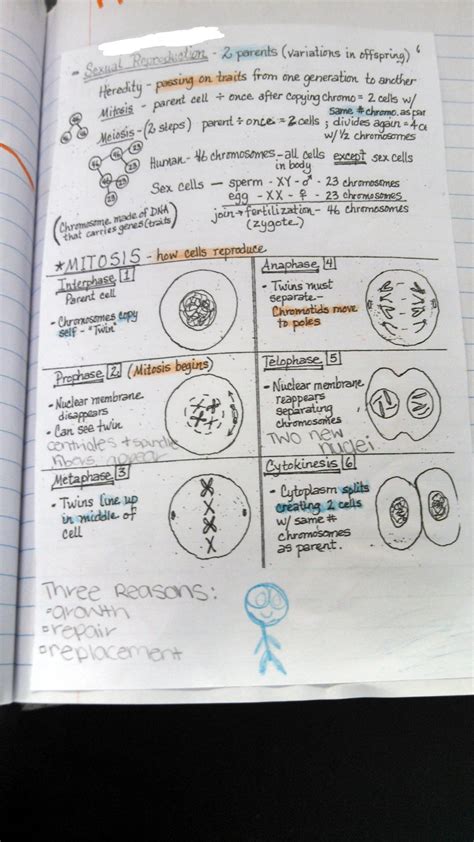 Sexual Reproduction - 2 parents (variations in offspring)
Heredity - passing on traits from one generation to another
Mitosis - parent cell ÷ once after copying chromo = 2 cells w/
same # chromo. as par
Meiosis - (2 steps) parent ÷ once = 2 cells ; divides again = 4
w/ ½ chromosomes
Human - 46 chromosomes - all cells except sex cells
in body
Sex cells — sperm - XY - ♂ - 23 chromosomes
egg - XX - ♀ - 23 chromosomes
join → fertilization - 46 chromosomes
(zygote)
(Chromosome made of DNA
that carries genes (traits)
46
46
46
46
46
23
23
23
23
★MITOSIS - how cells reproduce
Interphase 1
Parent cell
- Chromosomes copy
self - "Twin"
Anaphase 4
- Twins must
separate -
Chromotids move
to poles
Prophase 2 (Mitosis begins)
- Nuclear membrane
disappears
- Can see twin
centrioles + spindle
fibers appear
Telophase 5
- Nuclear membrane
reappears
separating
chromosomes
Two new
nuclei
Metaphase 3
- Twins line up
in middle of
cell
Cytokinesis 6
- Cytoplasm splits
creating 2 cells
w/ same #
chromosomes
as parent.
Three Reasons:
growth
repair
replacement